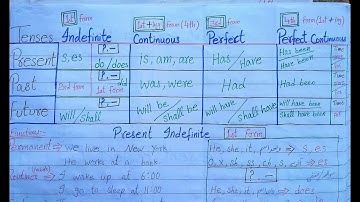 1st form 1st+ing form (4th) 3rd form 4th form (1st+ing)
Tenses Indefinite Continuous Perfect Perfect Continuous
Present s, es P.- do/does is, am, are Has/Have Has been Have been Time
Past 2nd form did 1st form was, were Had Had been Time
Future will/shall will be/shall be will have/shall have will have been shall have been Time
Functions:- Present Indefinite 1st form
Permanent⇒ We live in New York He, she, it, ⇒ s, es
He works at a bank. o, x, sh, ss, ch, s,
Routines⇒ I wake up at 6:00 P.-
I go to sleep at 11:00 He, she, it, ⇒ does